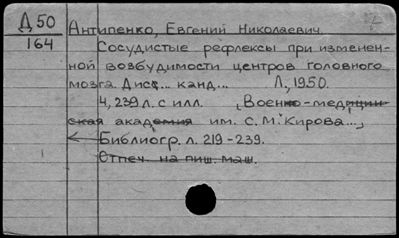 Д 50
164
Антипенко, Евгений Николаевич.
Сосудистые рефлексы при изменен-
ной возбудимости центров головного
мозга. Дисс... канд... Л., 1950.
4, 239 л. с илл. (Военно-медицин-
ская академия им. С.М. Кирова...)
Библиогр. л. 219-239.
Отпеч. на пиш. маш.